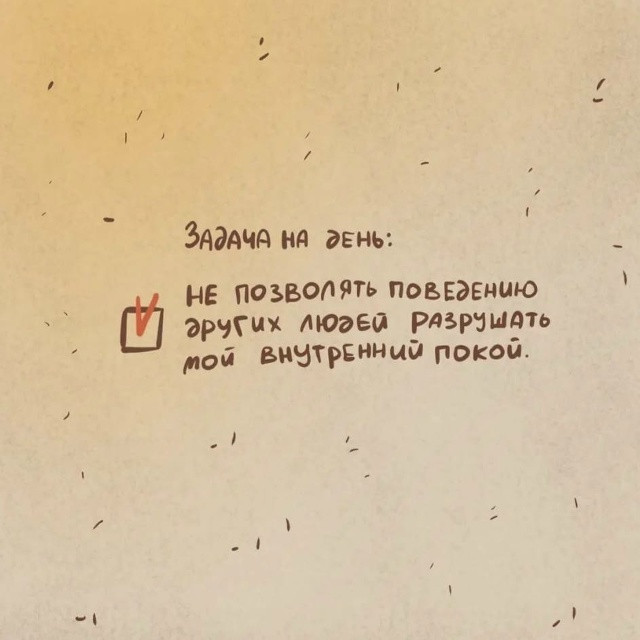 Задача на день:
не позволять поведению
других людей разрушать
мой внутренний покой.